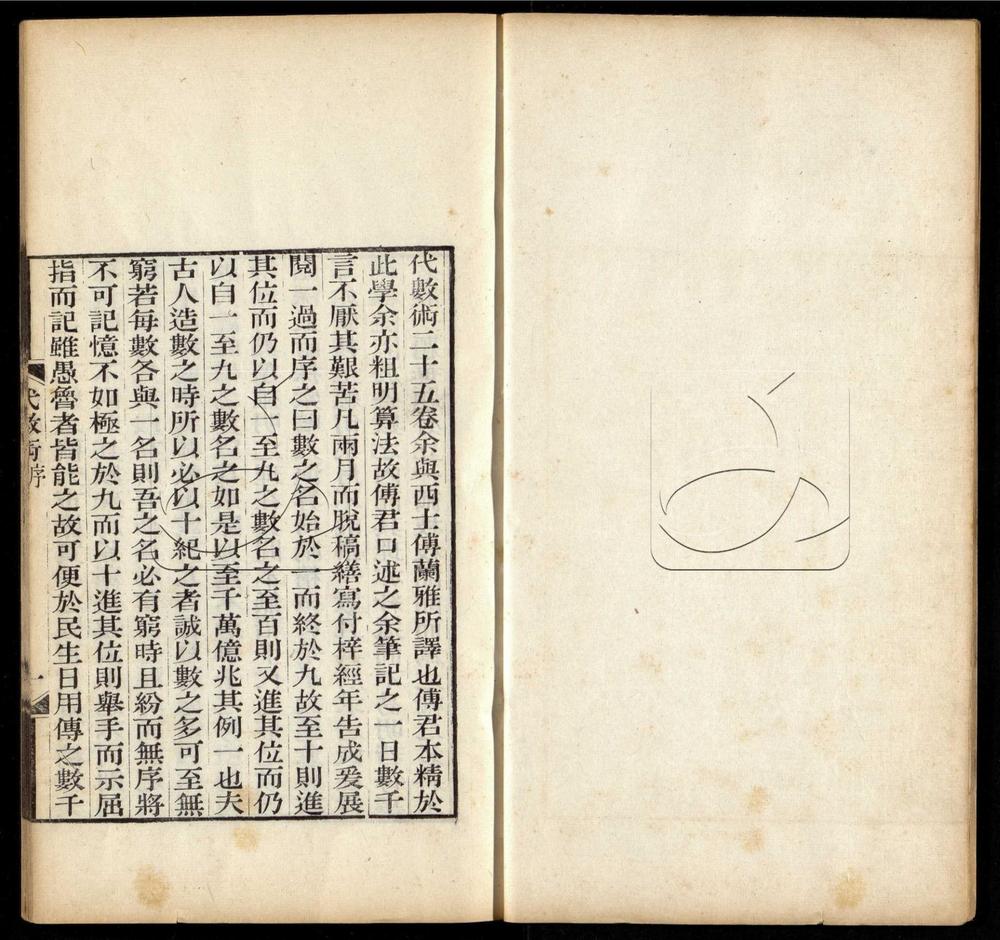 代數術二十五卷余與西士傅蘭雅所譯也傅君本精於
此學余亦粗明算法故傅君口述之余筆記之一日數千
言不厭其艱苦凡兩月而脫稿繕寫付梓經年告成爰展
閱一過而序之曰數之名始於一而終於九故至十則進
其位而仍以自一至九之數名之至百則又進其位而仍
以自一至九之數名之如是以至千萬億兆其例一也夫
古人造數之時所以必以十紀之者誠以數之多可至無
窮若每數各與一名則吾之名必有窮時且紛而無序將
不可記憶不如極之於九而以十進其位則舉手而示屈
指而記雖愚魯者皆能之故可便於民生日用傳之數千
代數術序
一